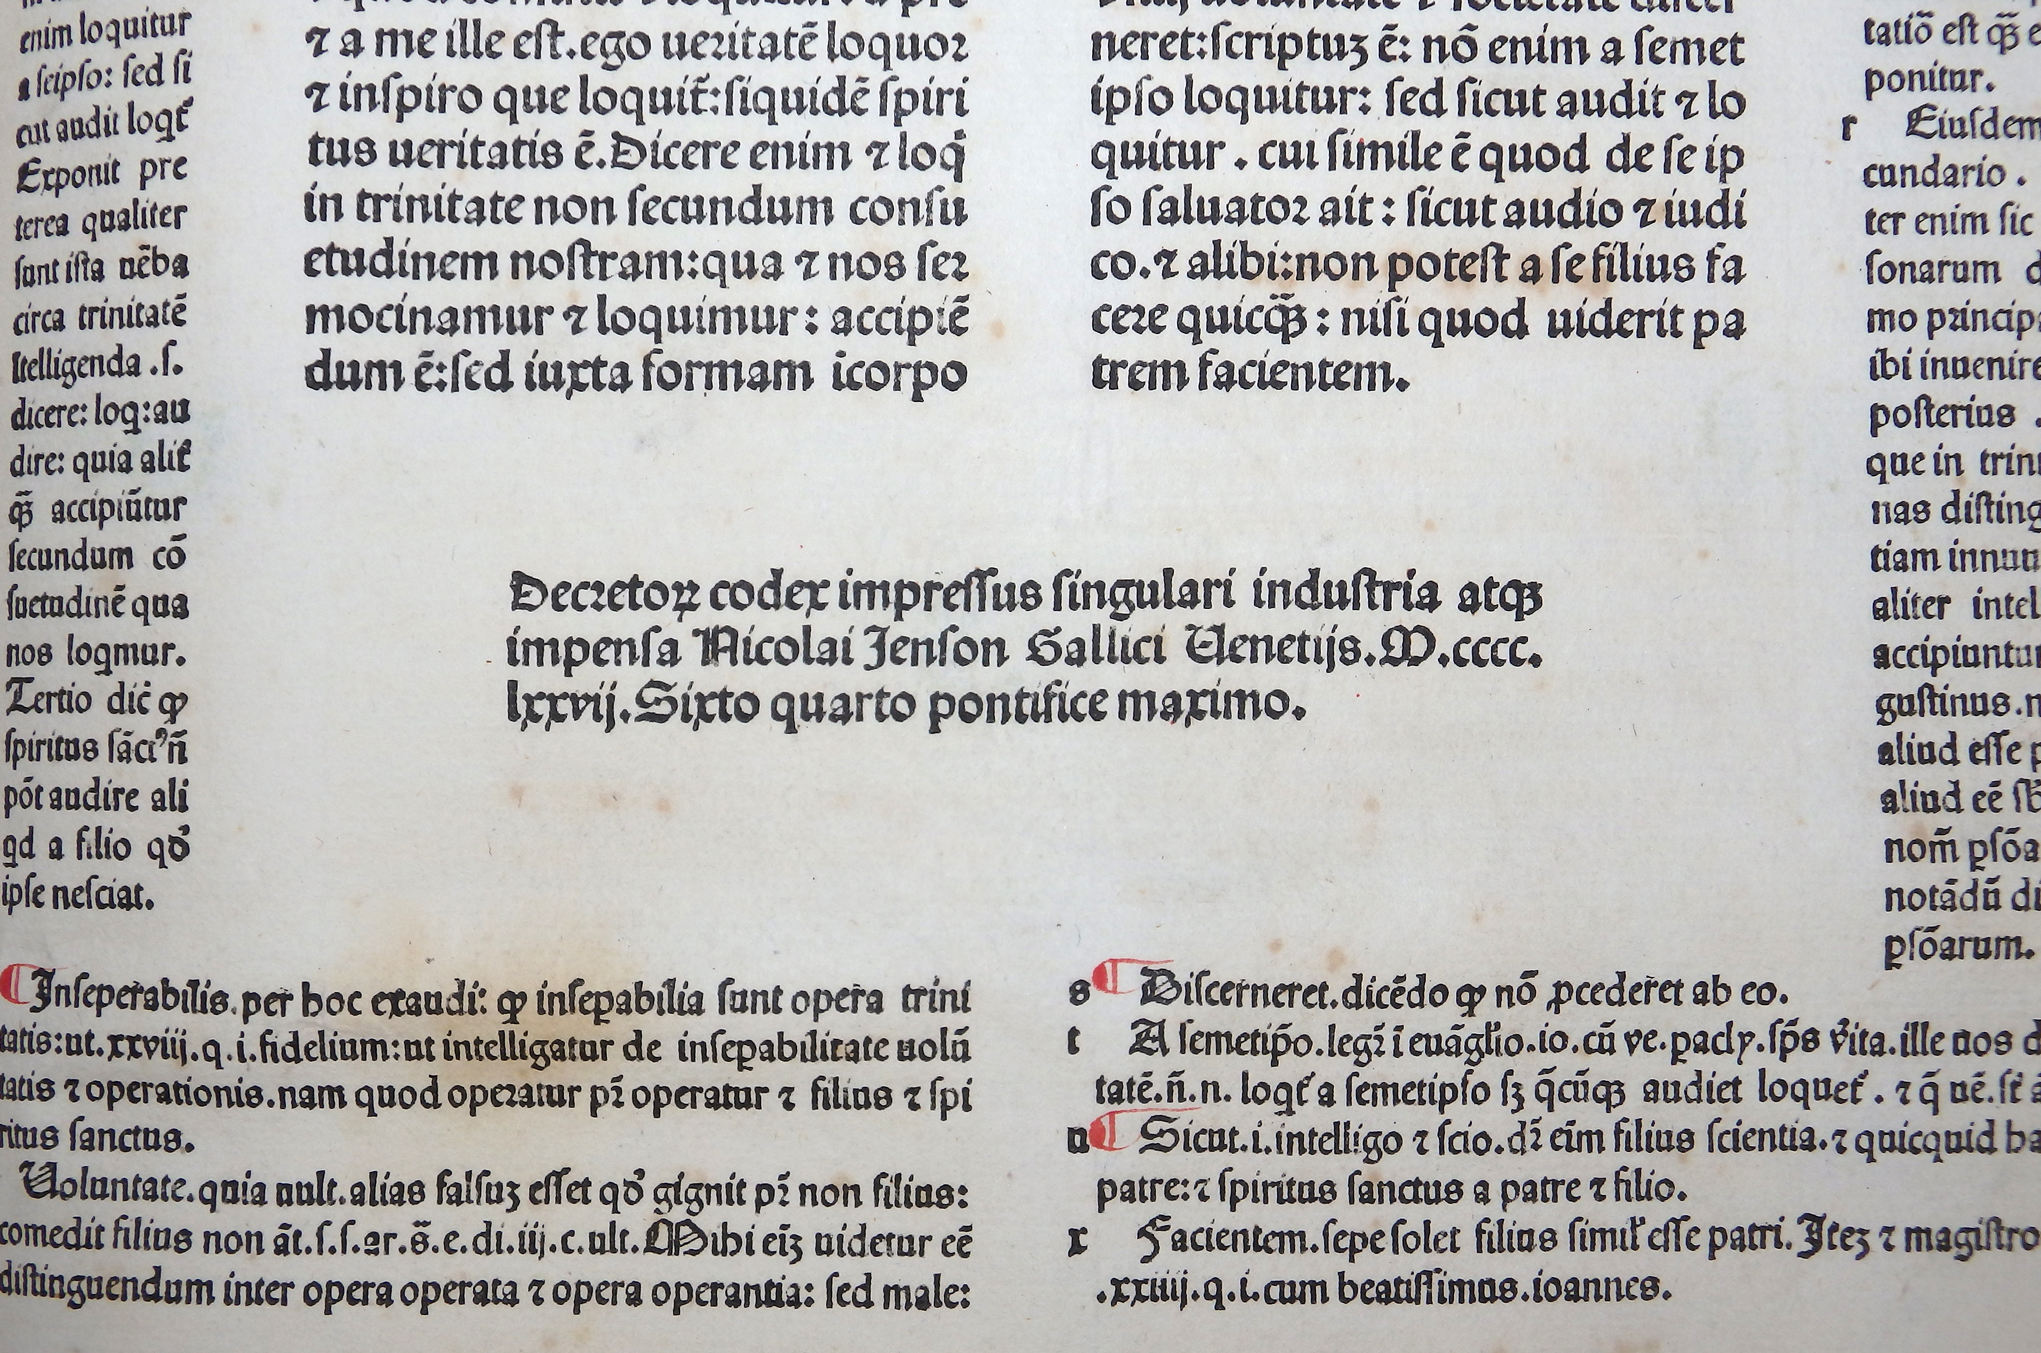 enim loquitur
a seipso: sed si
cut audit loqt᷑
Exponit pre
terea qualiter
sunt ista uẽba
circa trinitatẽ
ĩtelligenda .s.
dicere: loq:au
dire: quia alit᷑
q̃ꝫ accipiũtur
secundum cõ
suetudinẽ qua
nos loqmur.
Tertio dic̃ ꝙ
spiritus sãctꝰ ñ
põt audire ali
qd a filio qđ
ipse nesciat.
⁊ a me ille est.ego ueritatẽ loquor
⁊ inspiro que loquit᷑:siquidẽ spiri
tus ueritatis ẽ.Dicere enim ⁊ loq̃
in trinitate non secundum consu
etudinem nostram:qua ⁊ nos ser
mocinamur ⁊ loquimur: accipiẽ
dum ẽ:sed iuxta formam ĩcorpo
neret:scriptuꝫ ẽ: nõ enim a semet
ipso loquitur: sed sicut audit ⁊ lo
quitur . cui simile ẽ quod de se ip
so saluator ait: sicut audio ⁊ iudi
co.⁊ alibi:non potest a se filius fa
cere quicq̃ꝫ: nisi quod uiderit pa
trem facientem.
tatiõ est q̃ꝫ
ponitur.
r Eiusdem
cundario .
ter enim sic
sonarum
mo princip
ibi inuenire
posterius .
que in trin
nas disting
tiam innuu
aliter intel
accipiuntur
gustinus.
aliud esse
aliud eẽ
nom̃ ꝑsõa
notãdũ di
ꝑsõarum.
Decretoꝝ codex impressus singulari industria atqꝫ
impensa Nicolai Jenson Gallici Uenetijs.M.cccc.
lxxvij.Sixto quarto pontifice maximo.
¶ Inseperabilis.per hoc exaudi: ꝙ inseꝑabilia sunt opera trini
tatis:ut.xxviij.q.i.fidelium:ut intelligatur de inseꝑabilitate uolũ
tatis ⁊ operationis.nam quod operatur pr̃ operatur ⁊ filius ⁊ spi
ritus sanctus.
Uoluntate.quia uult.alias falsuꝫ esset qđ gignit pr̃ non filius:
comedit filius non ãt.s.s.ar.s̃.e.di.iij.c.ult.Mihi eiꝫ uidetur eẽ
distinguendum inter opera operata ⁊ opera operantia: sed male:
s ¶ Discerneret.dicẽdo ꝙ nõ ꝓcederet ab eo.
t A semetip̃o.legr̃ ĩ euãgl̃io.io.cũ ve.ꝑacly.sp̃s v̾ita.ille uos
tatẽ.ñ.n. loqt᷑ a semetipso sꝫ q̃cũqꝫ audiet loquet᷑ . ⁊ q̃ uẽ.st᷑
u ¶ Sicut.i.intelligo ⁊ scio.dr̃ eĩm filius scientia.⁊ quicquid ha
patre:⁊ spiritus sanctus a patre ⁊ filio.
x Facientem.sepe solet filius simil̃ esse patri.Iteꝫ ⁊ magistro
.xxiiij.q.i.cum beatissimus.ioannes.